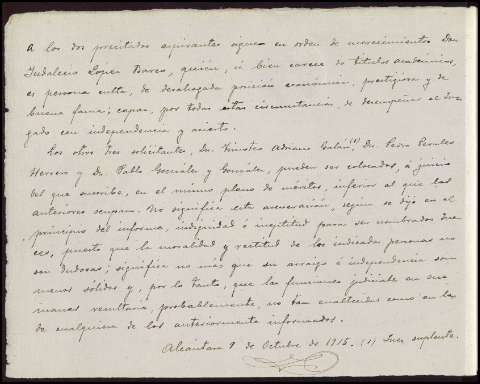 A los dos precitados aspirantes siguen en orden de merecimientos Don
Indalecio Lopez Barco, quien, si bien carece de títulos académicos,
es persona culta, de desahogada posición económica, prestigiosa y de
buena fama; capaz, por todas estas circunstancias, de desempeñar el Juz-
gado con independencia y acierto.
Los otros tres solicitantes, Dn. Adriano (1), Dn. Pedro Perales
Herrero y Dn. Pablo González y González, pueden ser colocados, á juicio
del que suscribe, en el mismo plano de méritos, inferior al que las
anteriores ocupan. No significa esta aseveración, segun se dijo en el
principio del informe, indignidad ó ineptitud para ser nombrados Jue-
ces, puesto que la moralidad y rectitud de los indicadas personas no
son dudosas; significa no más que su arraigo é independencia son
menos sólidos y, por lo tanto, que las funciones judiciales en sus
manos resultaría, probablemente, no tan enaltecidas como en las
de cualquiera de los anteriormente informados.
Alcántara 9 de Octubre de 1915. (1) Juez suplente.